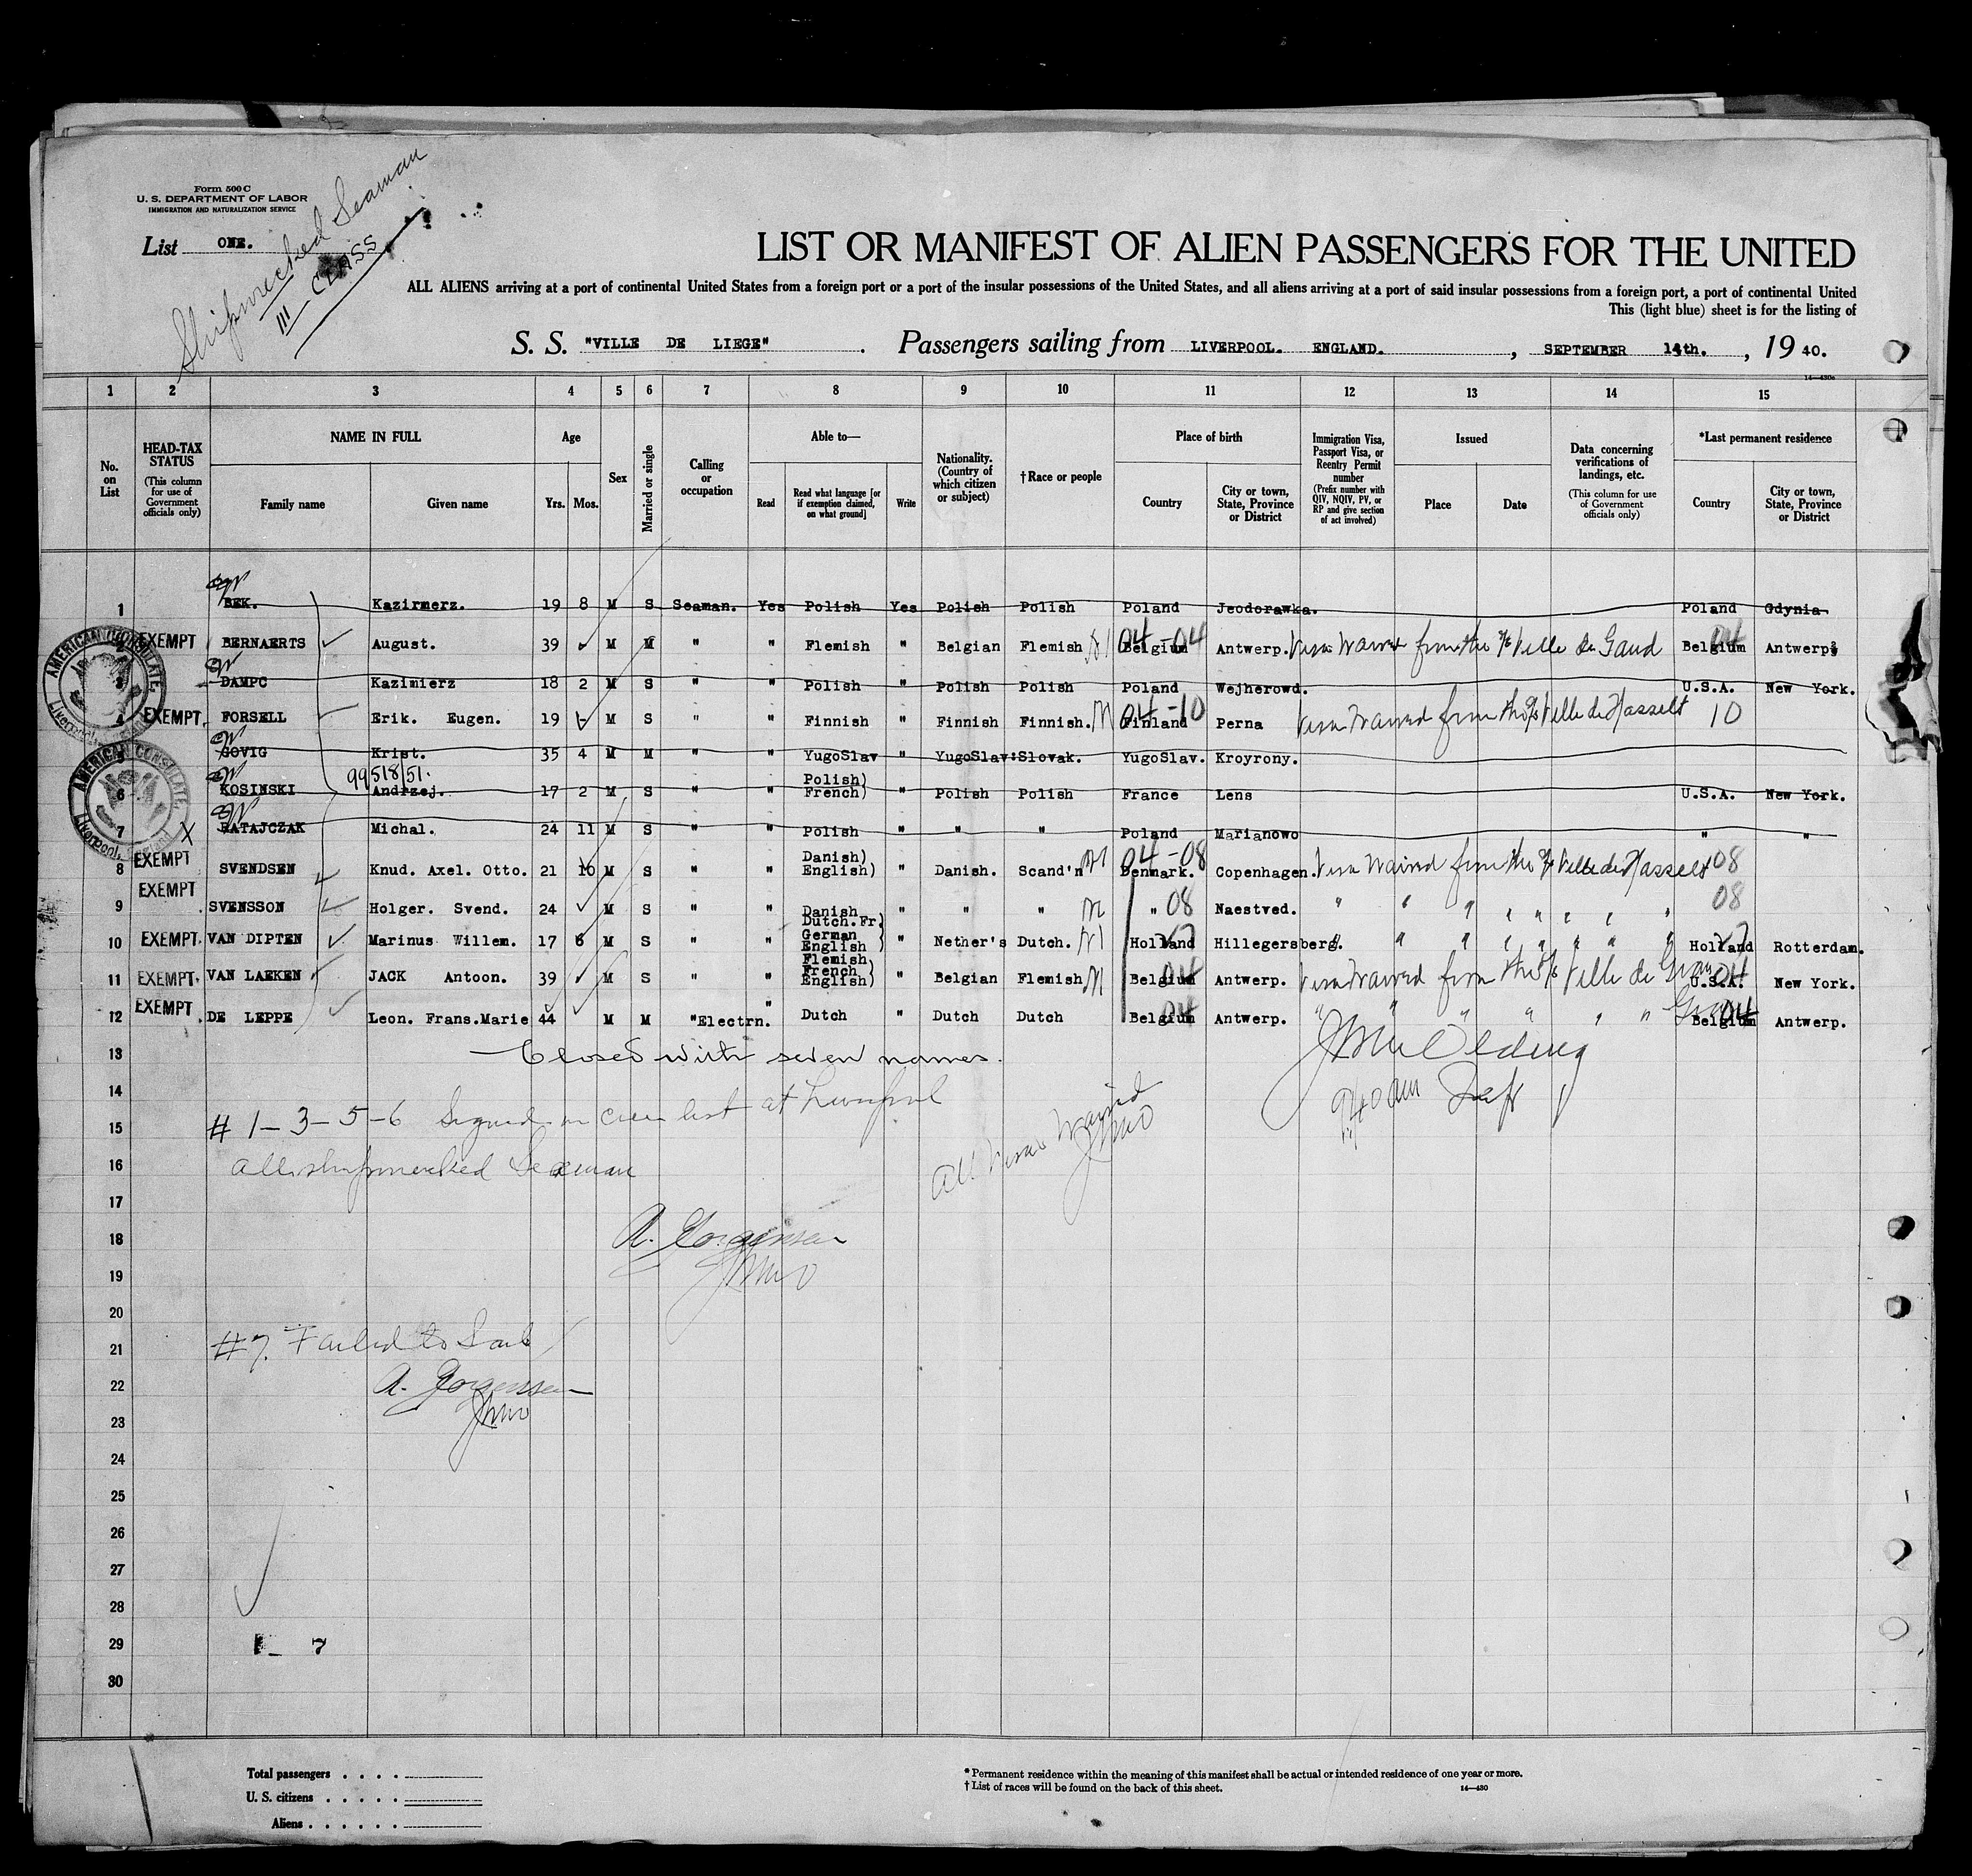 Form 500 C
U. S. DEPARTMENT OF LABOR
IMMIGRATION AND NATURALIZATION SERVICE
List ONE.
Shipwrecked Seaman
III CLASS
LIST OR MANIFEST OF ALIEN PASSENGERS FOR THE UNITED
ALL ALIENS arriving at a port of continental United States from a foreign port or a port of the insular possessions of the United States, and all aliens arriving at a port of said insular possessions from a foreign port, a port of continental United
This (light blue) sheet is for the listing of
S. S. "VILLE DE LIEGE" . Passengers sailing from LIVERPOOL. ENGLAND. , SEPTEMBER 14th. , 19 40.
1 2 3 4 5 6 7 8 9 10 11 12 13 14 15
No. on List
HEAD-TAX STATUS (This column for use of Government officials only)
NAME IN FULL Family name Given name
Age Yrs. Mos.
Sex
Married or single
Calling or occupation
Able to— Read Read what language [or if exemption claimed, on what ground] Write
Nationality. (Country of which citizen or subject)
† Race or people
Place of birth Country City or town, State, Province or District
Immigration Visa, Passport Visa, or Reentry Permit number (Prefix number with QIV, NQIV, PV, or RP and give section of act involved)
Issued Place Date
Data concerning verifications of landings, etc. (This column for use of Government officials only)
*Last permanent residence Country City or town, State, Province or District
1 BEK. Kazirmerz. 19 8 M S Seaman. Yes Polish Yes Polish Polish Poland Jeodorawka. Poland Gdynia
2 EXEMPT BERNAERTS August. 39 M M " " Flemish " Belgian Flemish 04-04 Belgium Antwerp. Visa waived from the S/S Ville de Gand Belgium 04 Antwerp.
3 DAMPC Kazimierz 18 2 M S " " Polish " Polish Polish Poland Wejherowd. U.S.A. New York.
4 EXEMPT. FORSELL Erik. Eugen. 19 M S " " Finnish " Finnish Finnish. M 04-10 Finland Perna Visa waived from the S/S Ville de Hasselt 10
5 GOVIG Krist. 35 4 M M " " YugoSlav " YugoSlav: Slovak. YugoSlav. Kroyrony.
99518/51.
6 KOSINSKI Andrzej. 17 2 M S " " Polish) French) " Polish Polish France Lens U.S.A. New York.
7 X RATAJCZAK Michal. 24 11 M S " " Polish " " " Poland Marianowo " "
8 EXEMPT SVENDSEN Knud. Axel. Otto. 21 10 M S " " Danish) English) " Danish. Scand'n M 04-08 Denmark. Copenhagen. Visa waived from the S/S Ville de Hasselt 08
9 EXEMPT SVENSSON Holger. Svend. 24 M S " " Danish " " " M " 08 Naestved. " " " " " " " " 08
10 EXEMPT. VAN DIPTEN Marinus Willem. 17 6 M S " " Dutch.Fr) German English ) " Nether's Dutch. M Holland Hillegersberg. " " " " " " " Holland Rotterdam.
11 EXEMPT. VAN LAEKEN JACK Antoon. 39 M S " " Flemish French ) English) " Belgian Flemish M Belgium 04 Antwerp. Visa waived from the S/S Ville de Gand U.S.A. 04 New York.
12 EXEMPT DE LEPPE Leon. Frans.Marie 44 M M "Electrn. " Dutch " Dutch Dutch Belgium 04 Antwerp. " " " " " " Belgium 04 Antwerp.
13 Closed with seven names.
14
15 # 1-3-5-6 Signed on crew list at Liverpool
16 All shipwrecked Seaman
All visas waived
9:40 am
17
18 A. Jorgensen
19
20
21 #7. Failed to Sail
22 A. Jorgensen
23
24
25
26
27
28
29 7
30
AMERICAN CONSULATE, Liverpool, England
AMERICAN CONSULATE, Liverpool, England
Total passengers . . . .
U. S. citizens . . . . .
Aliens . . . . . .
* Permanent residence within the meaning of this manifest shall be actual or intended residence of one year or more.
† List of races will be found on the back of this sheet. 14—430